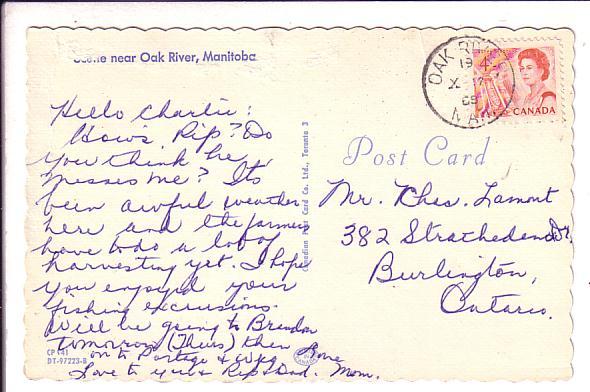 Scene near Oak River, Manitoba
OAK RIVER
19
X
69
MAN
CANADA
Hello Charlie:
How's Rip? Do
you think he
misses me? Its
been awful weather
here and the farmers
have to do a lot of
harvesting yet. I hope
you enjoyed your
fishing excursions.
Will be going to Brandon
tomorrow (Thurs) then
on to Portage & Wpg.
Love
Love to you & Rip & Dad. Mom.
CP 141
DT-97223-B
Canadian Post Card Co. Ltd., Toronto 3
Post Card
Mr. Chas. Lamont
382 Strathedendr.
Burlington,
Ontario.